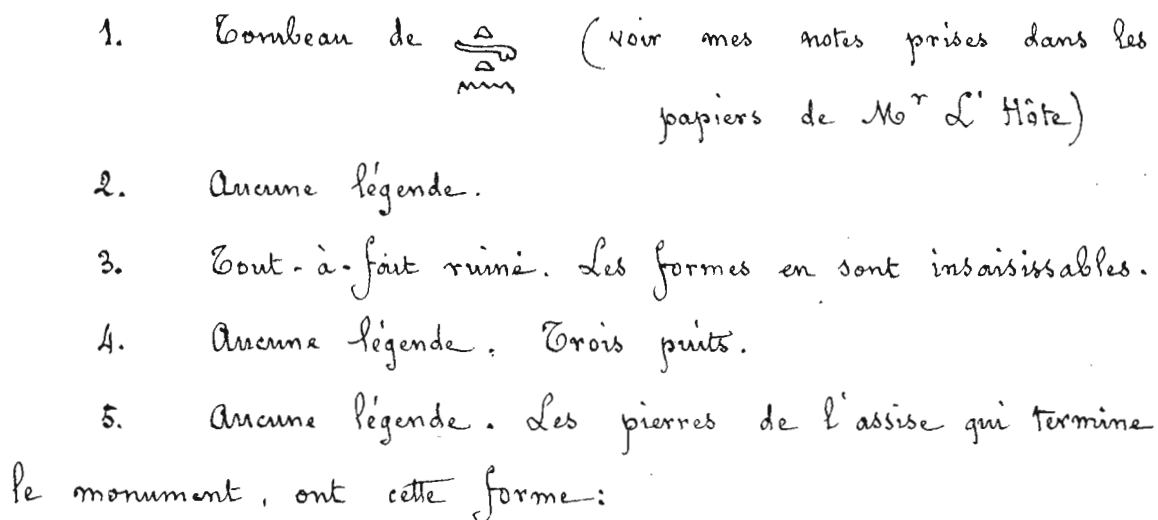 1. Tombeau de (voir mes notes prises dans les
papiers de Mʳ L'Hôte)
2. Aucune légende.
3. Tout-à-fait ruiné. Les formes en sont insaisissables.
4. Aucune légende. Trois puits.
5. Aucune légende. Les pierres de l'assise qui termine
le monument, ont cette forme: